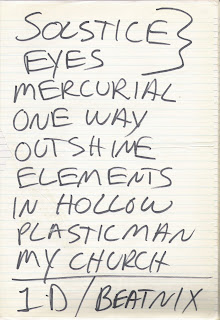 SOLSTICE
EYES
MERCURIAL
ONE WAY
OUTSHINE
ELEMENTS
IN HOLLOW
PLASTICMAN
MY CHURCH
1.D/BEATNIX